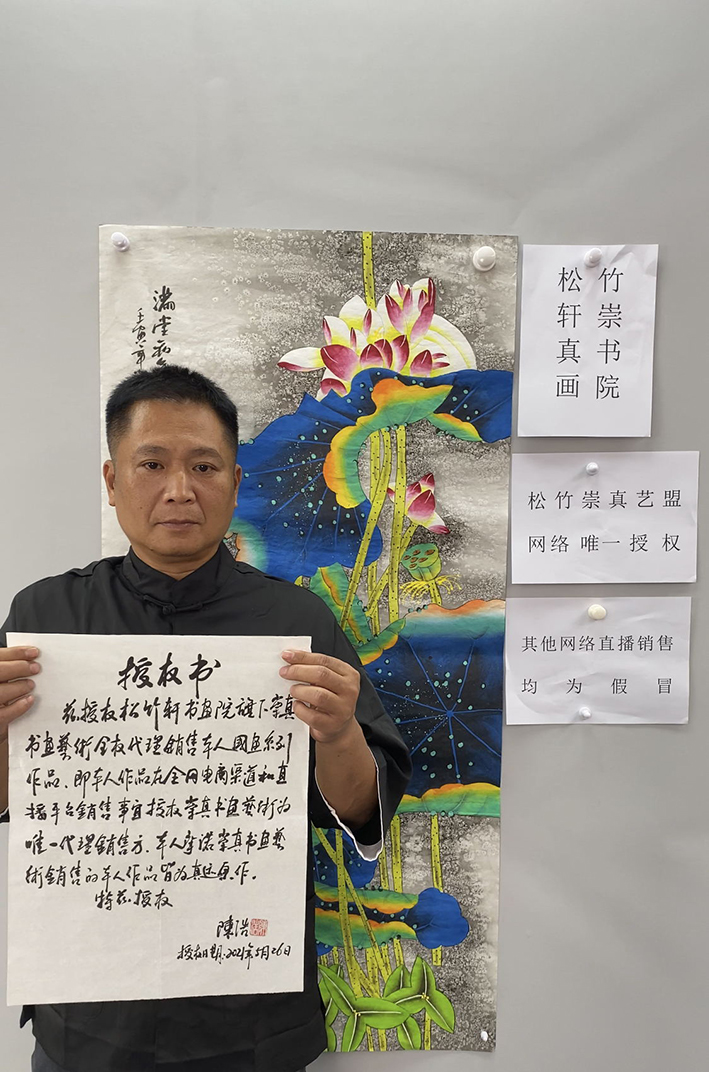 滿堂
壬寅年
授权书
兹授权松竹轩书画院旗下崇真
书画藝術全权代理銷售本人國画系列
作品、即本人作品在全网电商渠道和直
播平台銷售事宜授权崇真书画藝術为
唯一代理銷售方、本人承诺崇真书画藝
術銷售的本人作品皆为真迹原作。
特兹授权
陳浩
授权日期:2021年5月26日
松竹
轩崇
真书
画院
松竹崇真艺盟
网络唯一授权
其他网络直播销售
均为假冒